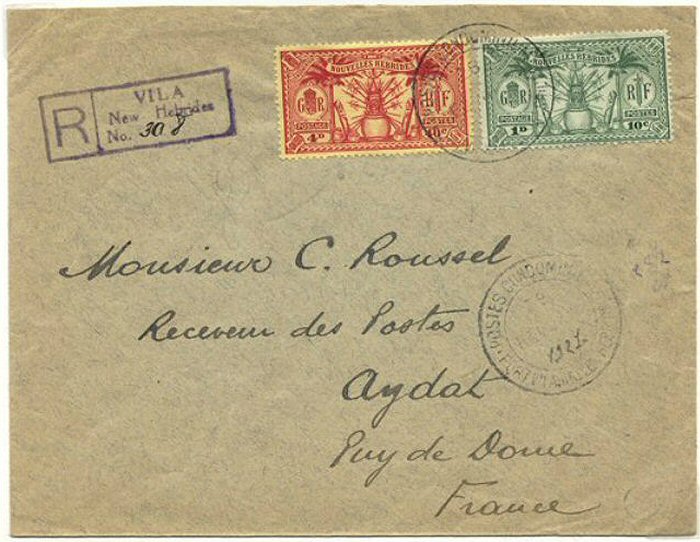 VILA
R New Hebrides
No. 308
NOUVELLES HEBRIDES
G R R F
POSTAGE POSTES
4D 40c
NOUVELLES HEBRIDES
R F
POSTAGE POSTES
1D 10c
Monsieur C. Roussel
Receveur des Postes
Aydat
Puy de Dome
France
POSTES
1927